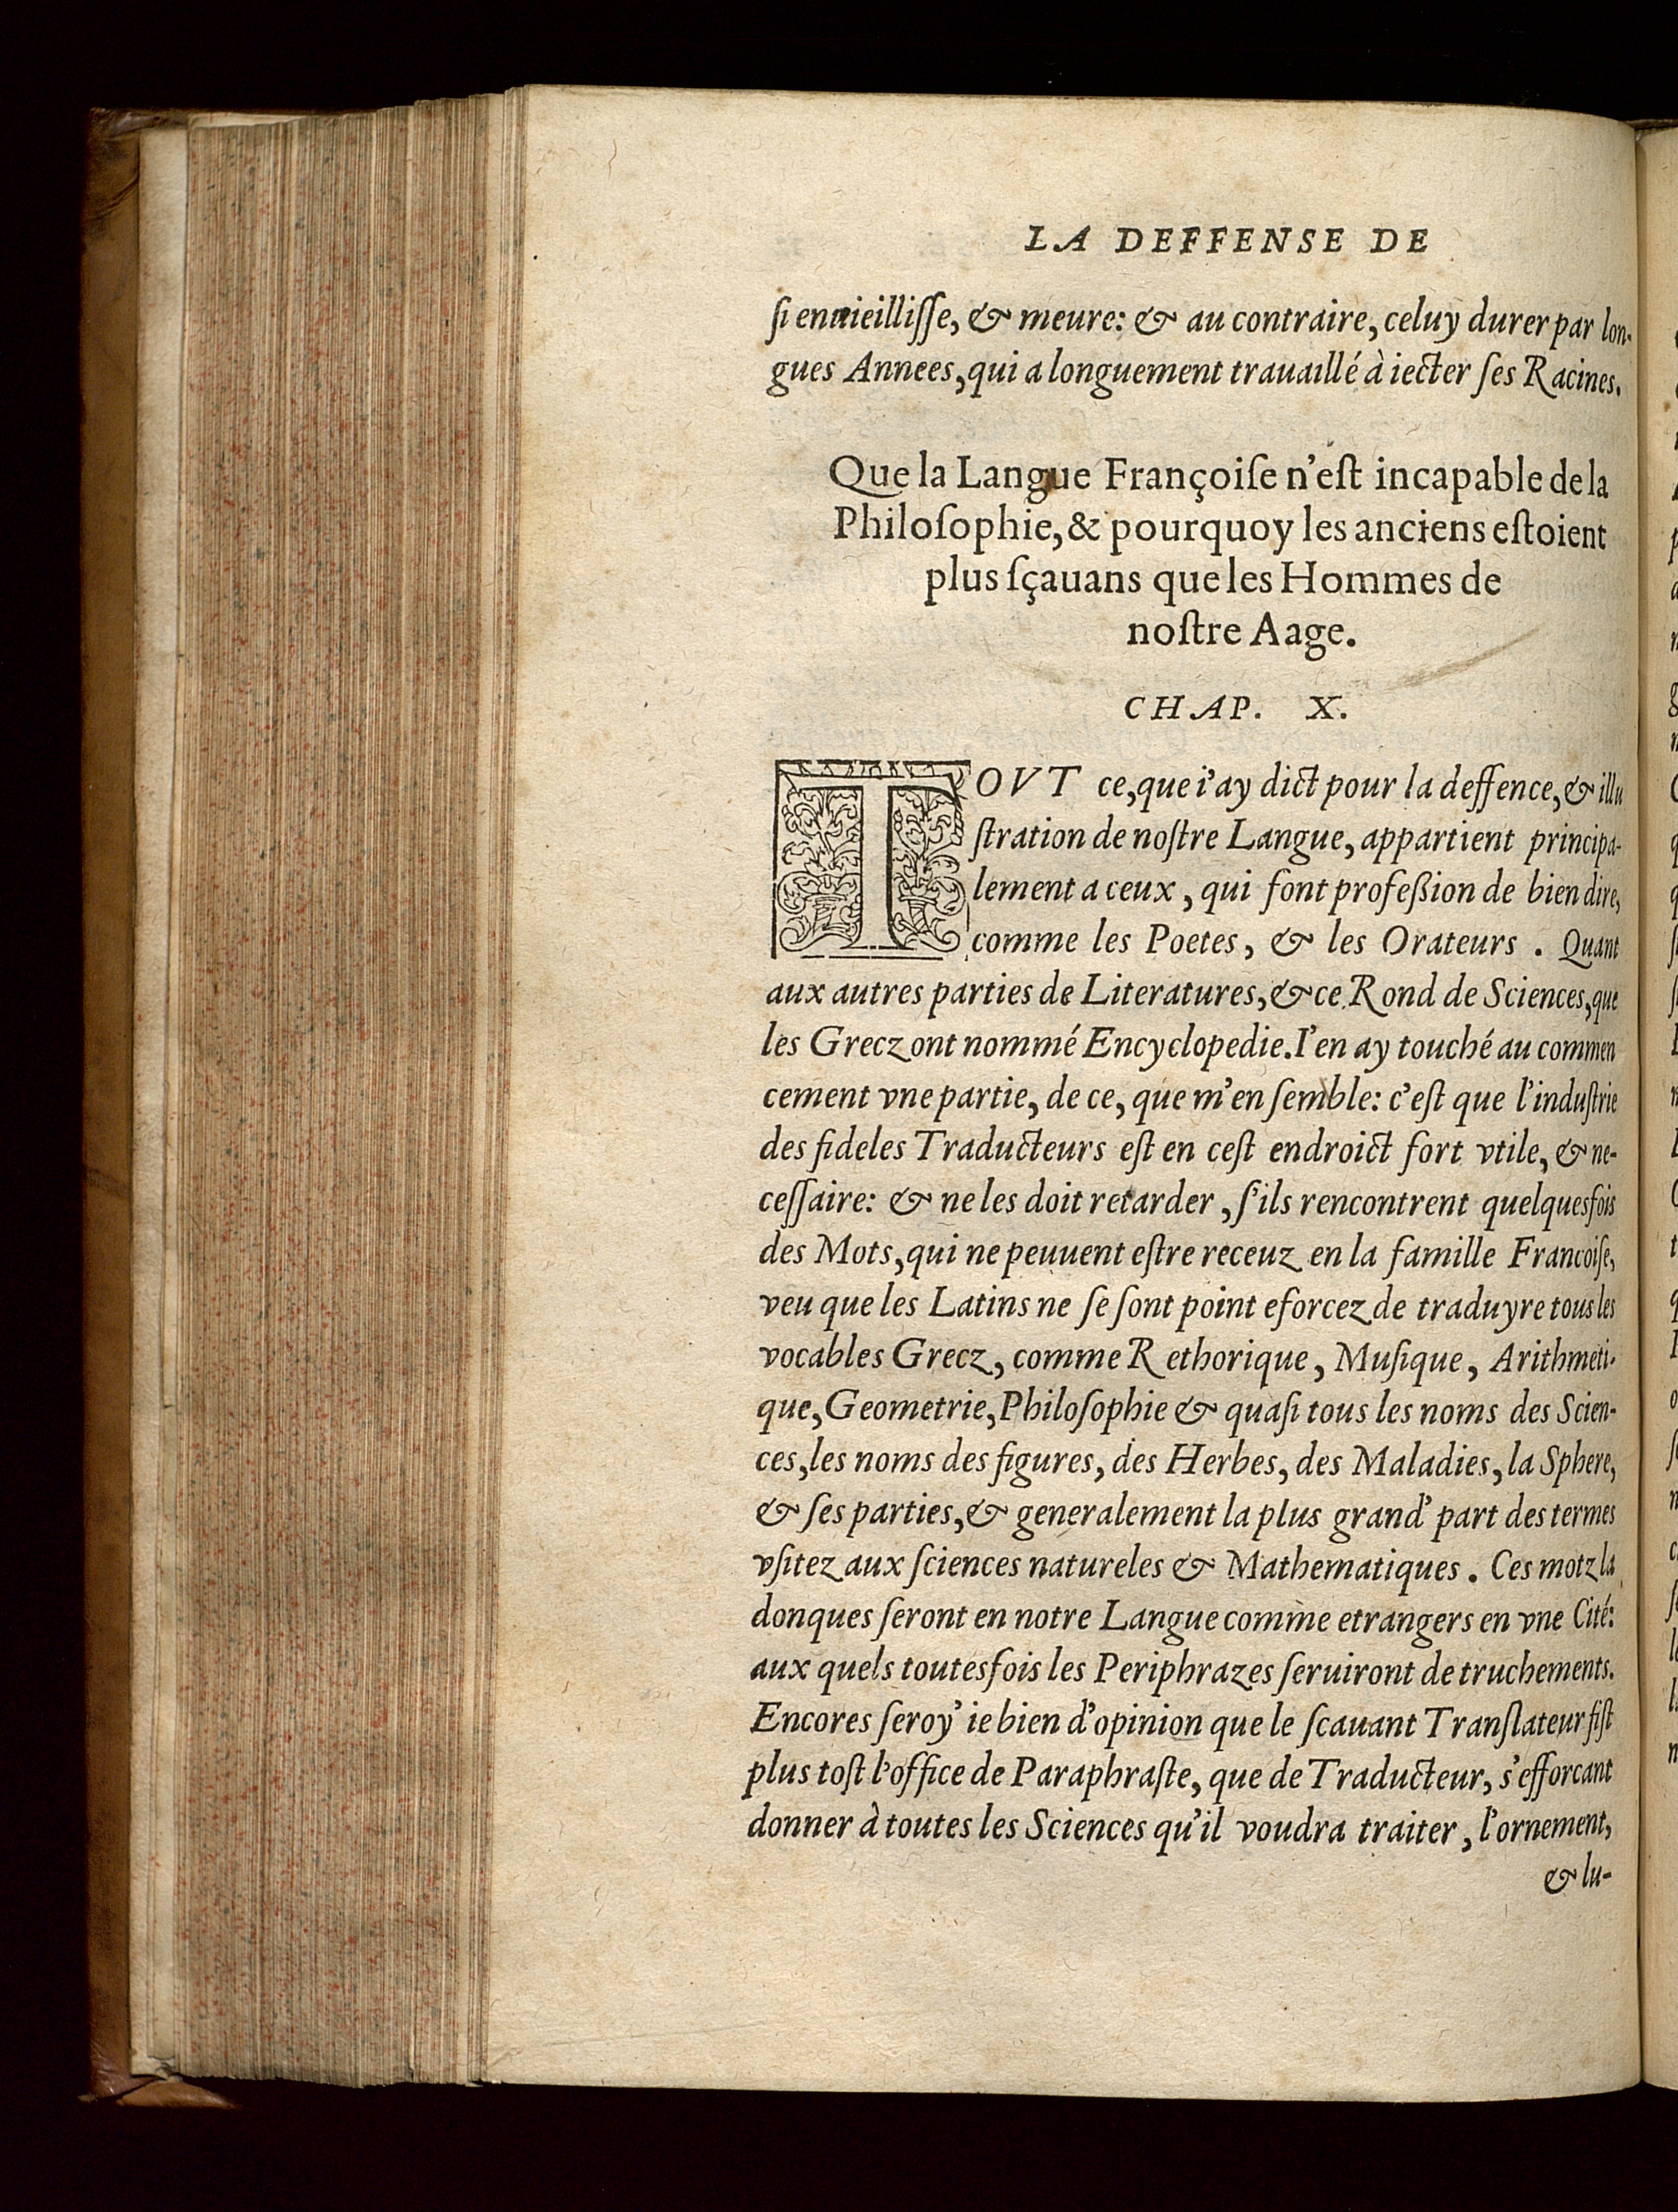 LA DEFFENSE DE
ſi enuieilliſſe, & meure: & au contraire, celuy durer par lon-
gues Annees, qui a longuement trauaillé à iecter ſes Racines.
Que la Langue Françoiſe n'eſt incapable de la
Philoſophie, & pourquoy les anciens eſtoient
plus ſçauans que les Hommes de
noſtre Aage.
CHAP. X.
TOVT ce, que i'ay dict pour la deffence, & illu
ſtration de noſtre Langue, appartient principa-
lement a ceux, qui font profeßion de bien dire,
comme les Poetes, & les Orateurs. Quant
aux autres parties de Literatures, & ce Rond de Sciences, que
les Grecz ont nommé Encyclopedie. I'en ay touché au commen
cement vne partie, de ce, que m'en ſemble: c'eſt que l'induſtrie
des fideles Traducteurs eſt en ceſt endroict fort vtile, & ne-
ceſſaire: & ne les doit retarder, ſ'ils rencontrent quelquesfois
des Mots, qui ne peuuent eſtre receuz en la famille Francoiſe,
veu que les Latins ne ſe ſont point eforcez de traduyre tous les
vocables Grecz, comme Rethorique, Muſique, Arithmeti-
que, Geometrie, Philoſophie & quaſi tous les noms des Scien-
ces, les noms des figures, des Herbes, des Maladies, la Sphere,
& ſes parties, & generalement la plus grand' part des termes
vſitez aux ſciences natureles & Mathematiques. Ces motz la
donques ſeront en notre Langue comme etrangers en vne Cité:
aux quels toutesfois les Periphrazes ſeruiront de truchements.
Encores ſeroy' ie bien d'opinion que le ſcauant Tranſlateur fiſt
plus toſt l'office de Paraphraſte, que de Traducteur, s'efforcant
donner à toutes les Sciences qu'il voudra traiter, l'ornement,
& lu-